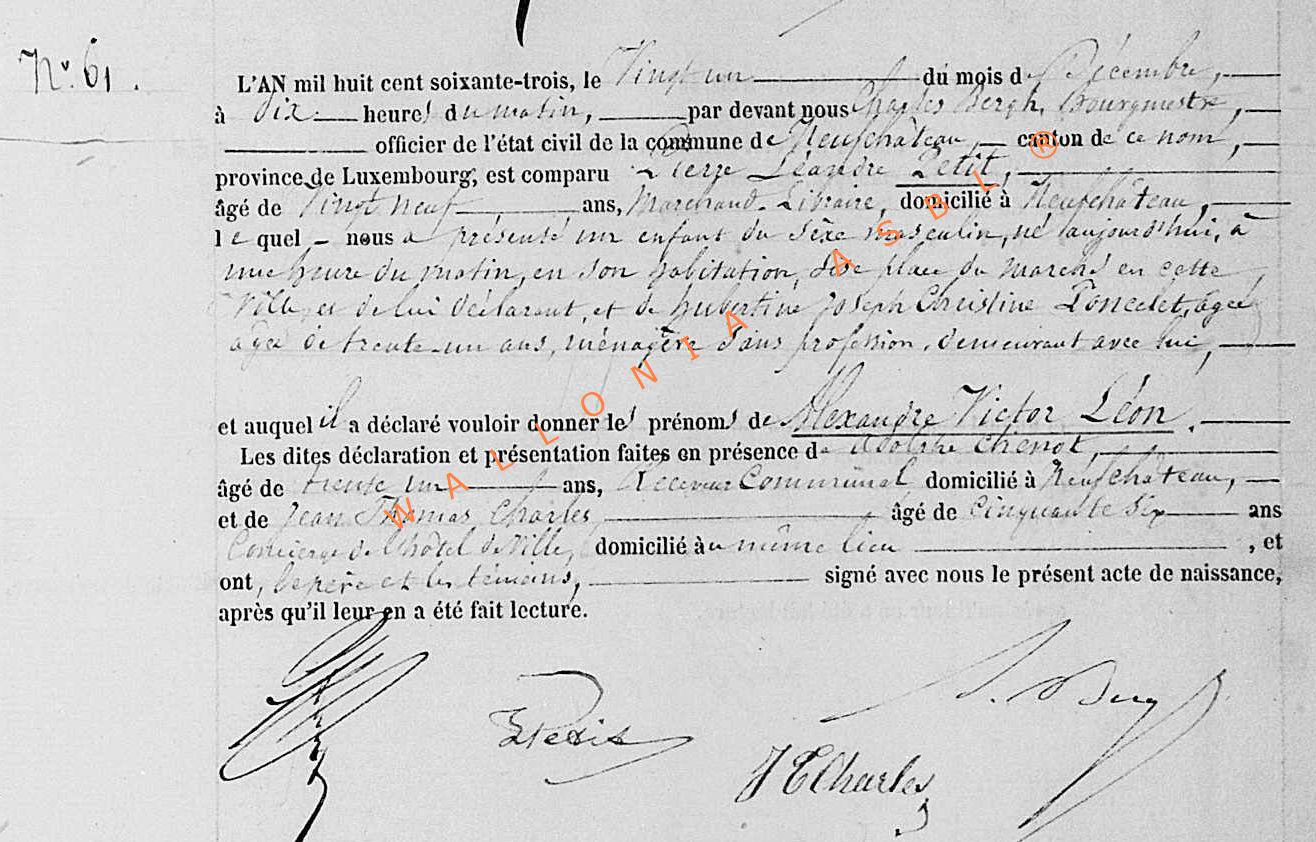 N° 61.
L'AN mil huit cent soixante-trois, le Vingt un du mois de Décembre,
à Dix heures du matin, par devant nous Charles Bergh, Bourgmestre,
officier de l'état civil de la Commune de Neufchâteau, canton de ce nom,
province de Luxembourg, est comparu Pierre Léandre Petit,
âgé de Vingt neuf ans, Marchand Libraire, domicilié à Neufchâteau,
lequel nous a présenté un enfant du sèxe masculin, né aujourd'hui, à
une heure du matin, en son habitation, sise place du Marché en cette
Ville, et de lui déclarant, et de hubertine Joseph Christine Poncelet, âgée
âgée de trente-un ans, ménagère sans profession, demeurant avec lui,
et auquel il a déclaré vouloir donner les prénoms de Alexandre Victor Léon.
Les dites déclaration et présentation faites en présence de Adolphe Chenot,
âgé de trente un ans, Receveur Communal domicilié à Neufchâteau,
et de Jean Thomas Charles, âgé de Cinquante six ans
Concierge de l'hôtel de Ville, domicilié au même lieu, et
ont, le père et les témoins, signé avec nous le présent acte de naissance,
après qu'il leur en a été fait lecture.
Petit
JTCharles
WALLONIA ASBL ®